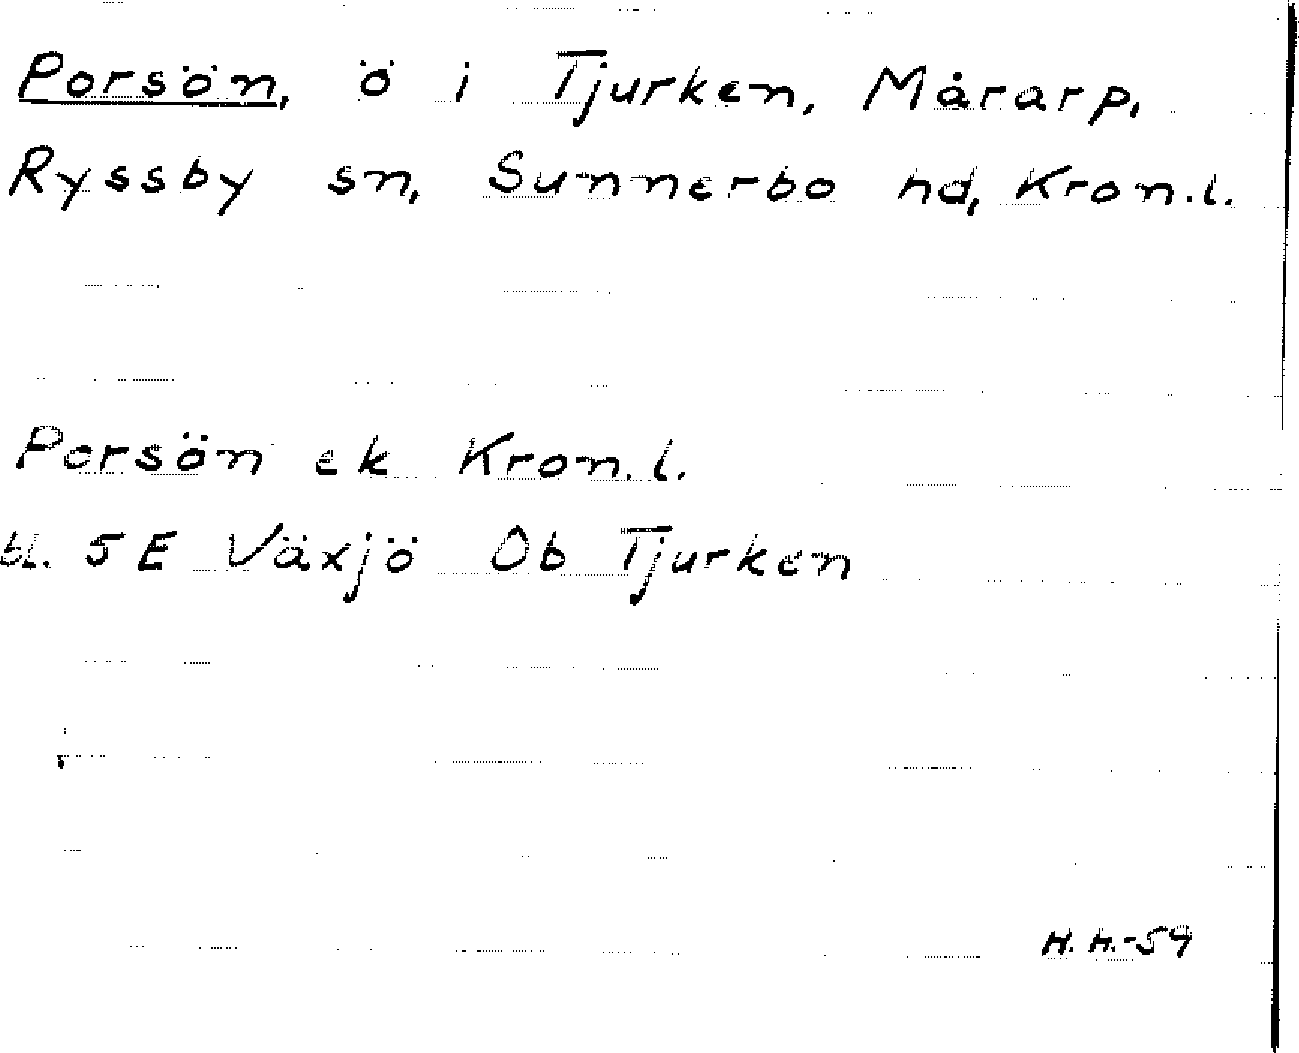 Porsön, ö i Tjurken, Mårarp,
Ryssby sn, Sunnerbo hd, Kron.l.
Porsön ek Kron.l.
bl. 5E Växjö Ob Tjurken
H.H.-59